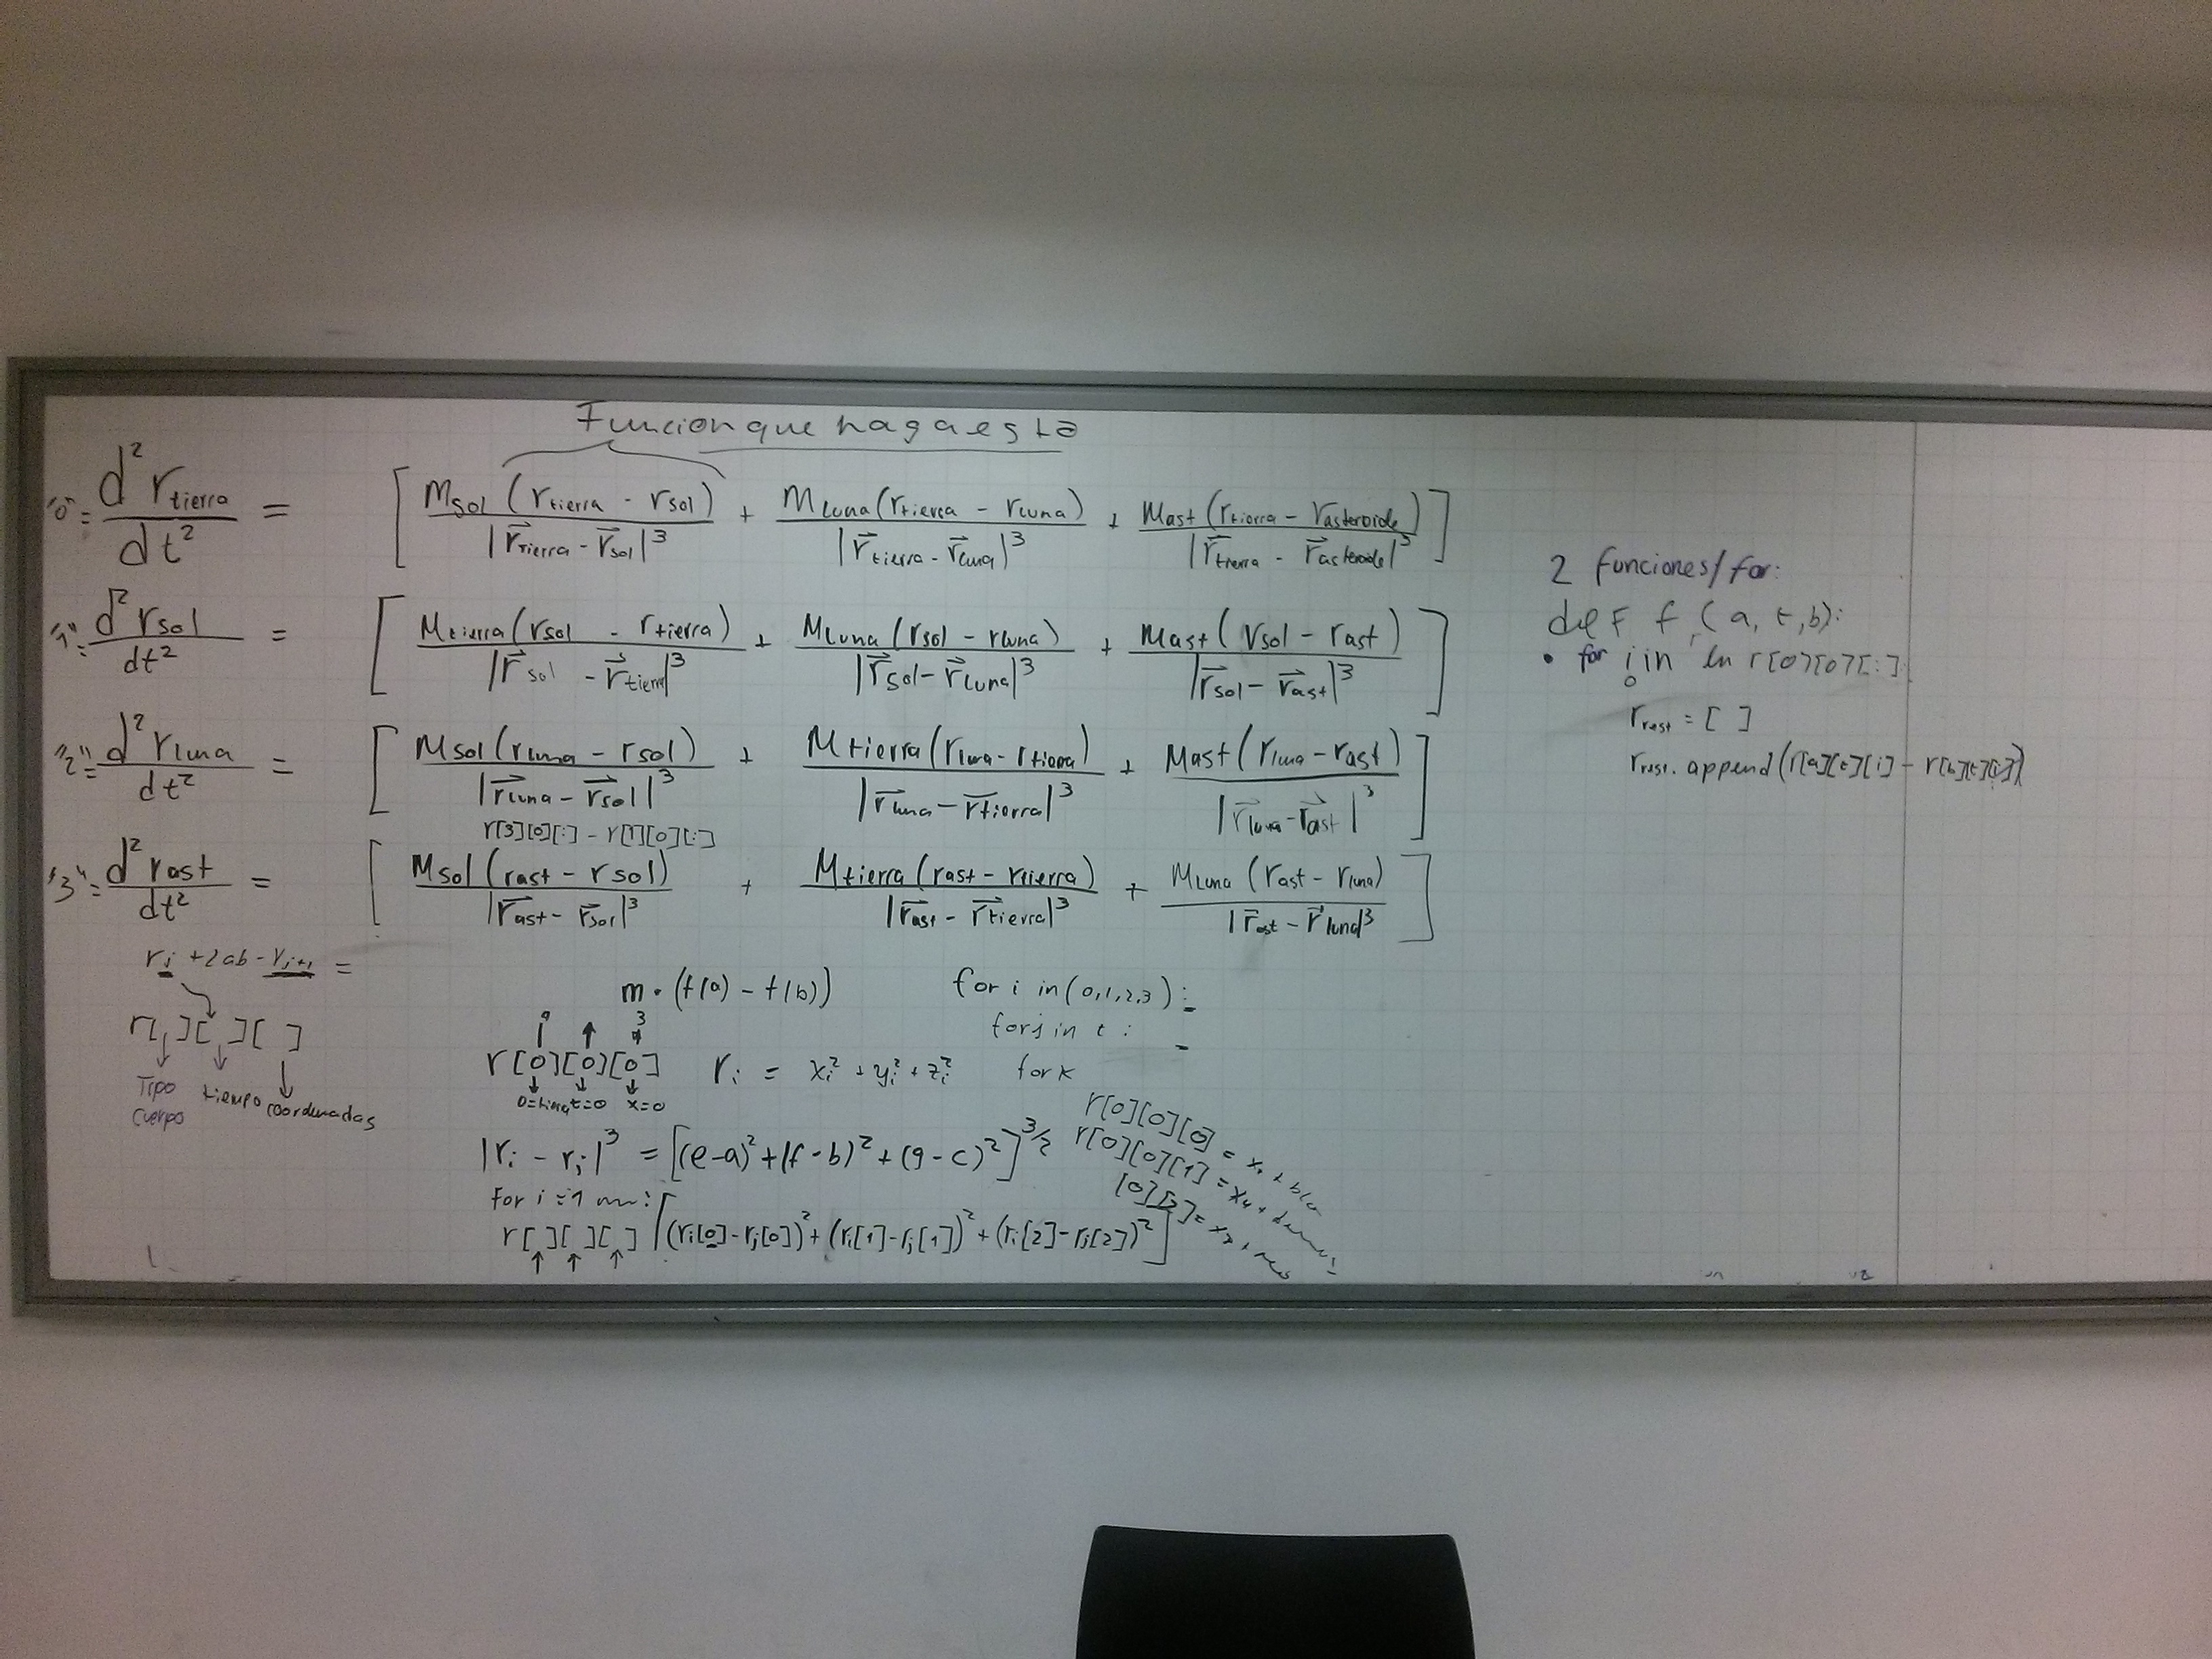 Funcion que haga esta
"0" = d² r_tierra / dt² = [ M_sol (r_tierra - r_sol) / |r⃗_tierra - r⃗_sol|³ + M_Luna (r_tierra - r_luna) / |r⃗_tierra - r⃗_luna|³ + M_ast (r_tierra - r_asteroide) / |r⃗_tierra - r⃗_asteroide|³ ]
"1" = d² r_sol / dt² = [ M_tierra (r_sol - r_tierra) / |r⃗_sol - r⃗_tierra|³ + M_Luna (r_sol - r_luna) / |r⃗_sol - r⃗_luna|³ + M_ast (r_sol - r_ast) / |r⃗_sol - r⃗_ast|³ ]
"2" = d² r_luna / dt² = [ M_sol (r_luna - r_sol) / |r⃗_luna - r⃗_sol|³ + M_tierra (r_luna - r_tierra) / |r⃗_luna - r⃗_tierra|³ + M_ast (r_luna - r_ast) / |r⃗_luna - r⃗_ast|³ ]
r[3][0][:] - r[1][0][:]
"3" = d² r_ast / dt² = [ M_sol (r_ast - r_sol) / |r⃗_ast - r⃗_sol|³ + M_tierra (r_ast - r_tierra) / |r⃗_ast - r⃗_tierra|³ + M_Luna (r_ast - r_luna) / |r⃗_ast - r⃗_luna|³ ]
r_i + 2ab - r_i+1 =
r[ ][ ][ ]
Tipo cuerpo tiempo coordenadas
m · (f(a) - f(b))
3
r[0][0][0]
0=tierra t=0 x=0
r_i = x_i² + y_i² + z_i²
for i in (0,1,2,3):
for j in t:
for k
|r_i - r_j|³ = [(e-a)² + (f-b)² + (g-c)²]^3/2
for i = 1
r[ ][ ][ ] [(r_i[0] - r_j[0])² + (r_i[1] - r_j[1])² + (r_i[2] - r_j[2])²]
r[0][0][0] =
r[0][0][1] =
[0][2] =
2 funciones/for:
def f (a, t, b):
• for i in len r[0][0][:]
r_rest = [ ]
r_rest.append(r[a][t][i] - r[b][t][i])